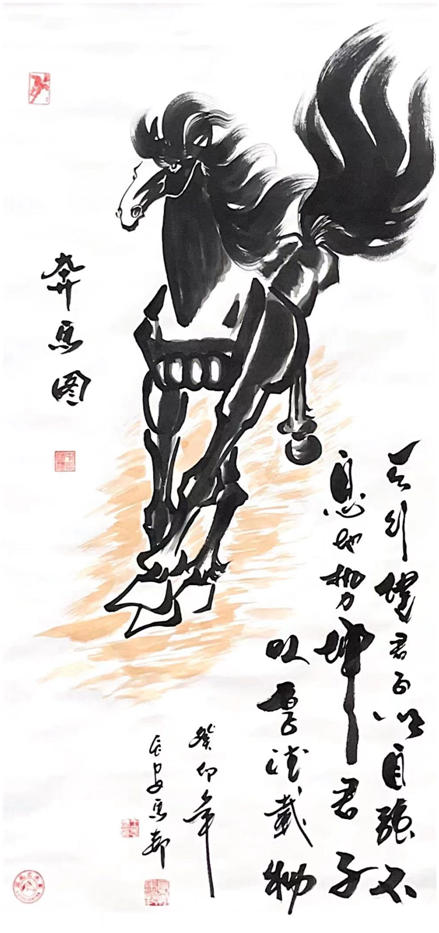 奔马图
天行健君子以自强不
息地势坤君子
以厚德载物
癸卯年
长安马